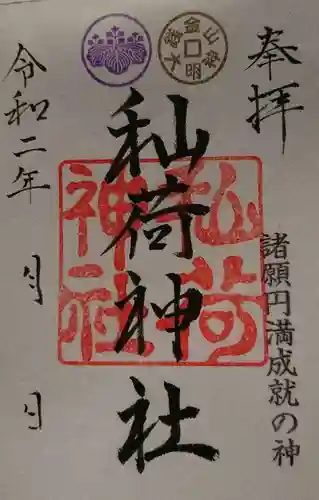 奉拝
諸願円満成就の神
秈荷神社
秈荷神社
令和二年 月 日